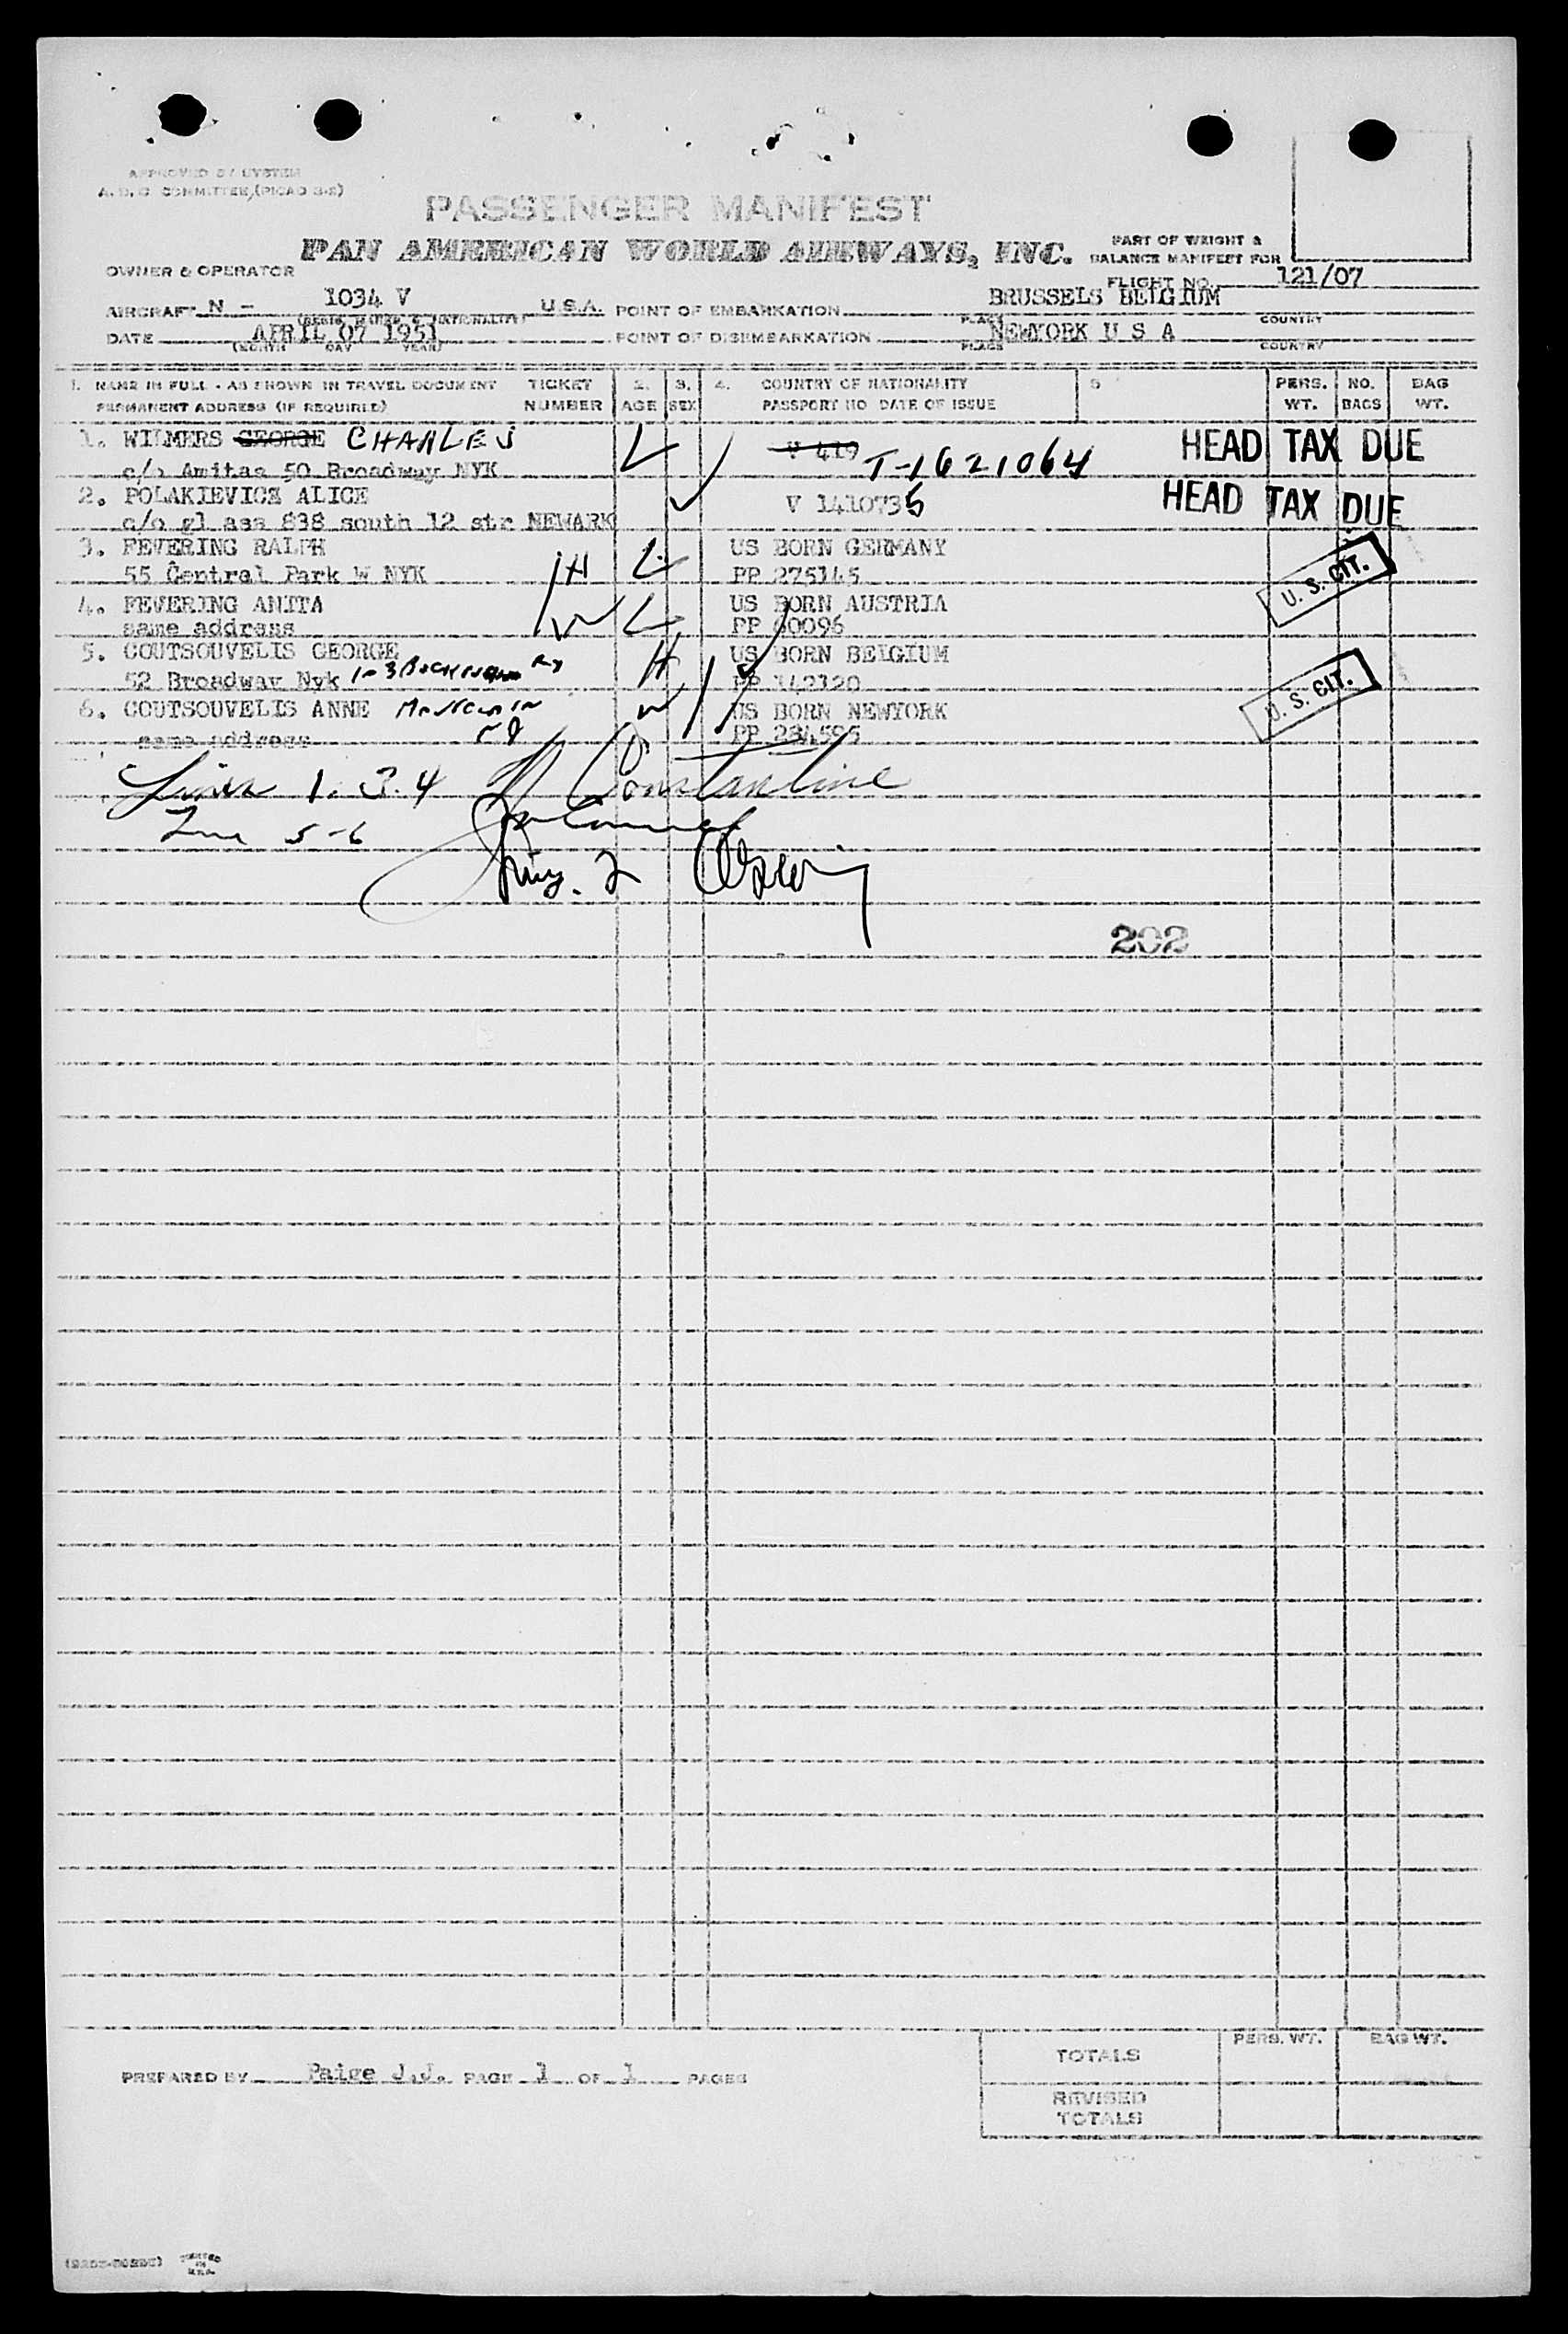 APPROVED BY SYSTEM
A. D. C COMMITTEE, (PICAO 3-2)
PASSENGER MANIFEST
PAN AMERICAN WORLD AIRWAYS, INC.
PART OF WEIGHT &
BALANCE MANIFEST FOR
OWNER & OPERATOR
FLIGHT NO. 121/07
AIRCRAFT N - 1034 V U.S.A. POINT OF EMBARKATION BRUSSELS BELGIUM
PLACE COUNTRY
DATE APRIL 07 1951 POINT OF DISEMBARKATION NEWYORK U S A
(MONTH DAY YEAR) PLACE COUNTRY
1. NAME IN FULL - AS SHOWN IN TRAVEL DOCUMENT TICKET 2. 3. 4. COUNTRY OF NATIONALITY 5 PERS. NO. BAG
PERMANENT ADDRESS (IF REQUIRED) NUMBER AGE SEX PASSPORT NO DATE OF ISSUE WT. BAGS WT.
1. WILMERS GEORGE CHARLES V 419 T-1621064 HEAD TAX DUE
c/o Amitas 50 Broadway NYK
2. POLAKIEVICZ ALICE V 1410735 HEAD TAX DUE
c/o gl ass 838 south 12 str NEWARK
3. FEVERING RALPH US BORN GERMANY
55 Central Park W NYK H L PP 275145 U. S. CIT.
4. FEVERING ANITA US BORN AUSTRIA
same address W L PP 60096
5. COUTSOUVELIS GEORGE H US BORN BELGIUM
52 Broadway Nyk PP 142120 U. S. CIT.
6. COUTSOUVELIS ANNE W US BORN NEWYORK
same address PP 234596
Lines 1. 3. 4 Constantine
Line 5-6
202
PREPARED BY Paige J.J. PAGE 1 OF 1 PAGES
PERS. WT. BAG WT.
TOTALS
REVISED
TOTALS
PRINTED
IN
U.S.A.